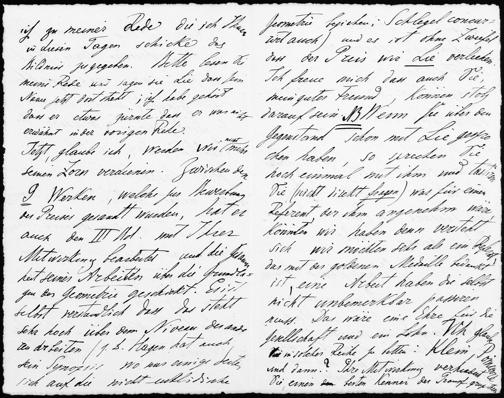 ich zu meiner Rede die ich Ihnen
in diesen Tagen schicke das
Bildniss zugegeben. Bitte lesen Sie
meine Rede und sagen sie die dass sein
Name jetzt dort steht; ich habe gehört
dass er etwas dass er war nicht
erwähnt in der vorigen Rede.
Jetzt, glaube ich, werden wir nicht mehr
seinen Zorn verdienen. Zwischen den
9 Werken, welche zur Bewerbung
des Preises gesandt wurden, hat er
auch den III Bd. mit Ihrer
Mitwirkung bearbeitet und die
seines Arbeiten über die Grundla-
gen der Geometrie geschickt. Es ist
selbst verständlich dass das steht
sehr hoch über dem Niveau der ande-
ren Arbeiten (z. B. Hagen hat auch
sein Synopsis wo nur einige Seiten
sich auf die nicht-euklidische
Geometrie beziehen; Schlegel concur-
rirt auch) und es ist ohne Zweifel
dass der Preis wird Lie verliehen.
Ich freue mich dass auch Sie,
mein guter Freund, können stolz
darauf sein NB Wenn Sie über den
Gegenstand schon mit Lie gespro-
chen haben, so sprechen Sie
noch einmal mit ihm und
Sie (nicht direkt fragen) was für einen
Referent, der ihm angenehm wäre
könnten wir haben denn versteht
sich wir möchten sehr als ein
das mit der goldenen Medaille
ist, eine Arbeit haben die selbst
nicht unbemerkbar passiren
muss. Das wäre eine Ehre für die
Gesellschaft und ein Lohn.
in solcher Reihe zu treten: Klein,
und dann? Ihre Mitwirkung
Sie einen den besten Kenner der